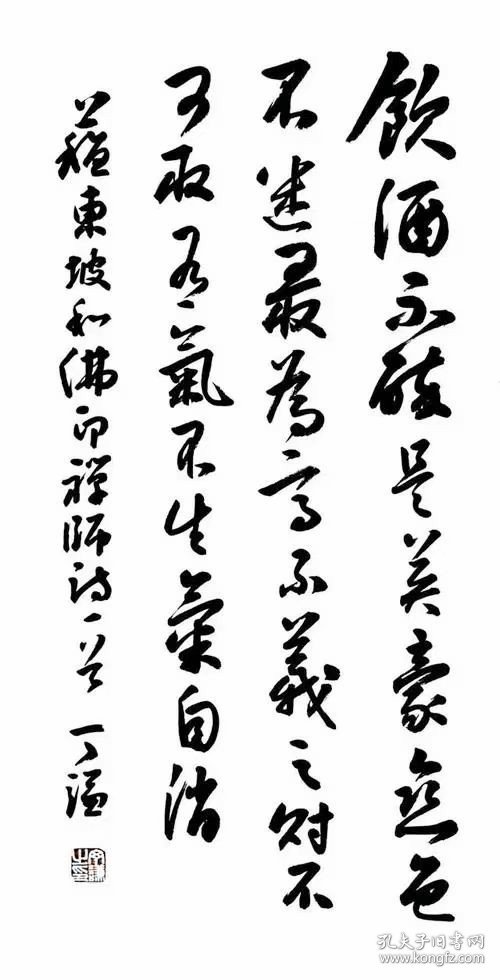 飲酒不醉是英豪戀色
不迷最為高不義之財不
可取有氣不生氣自消
蘇東坡和佛印禪師詩一首 丁
孔夫子旧书网
www.kongfz.com